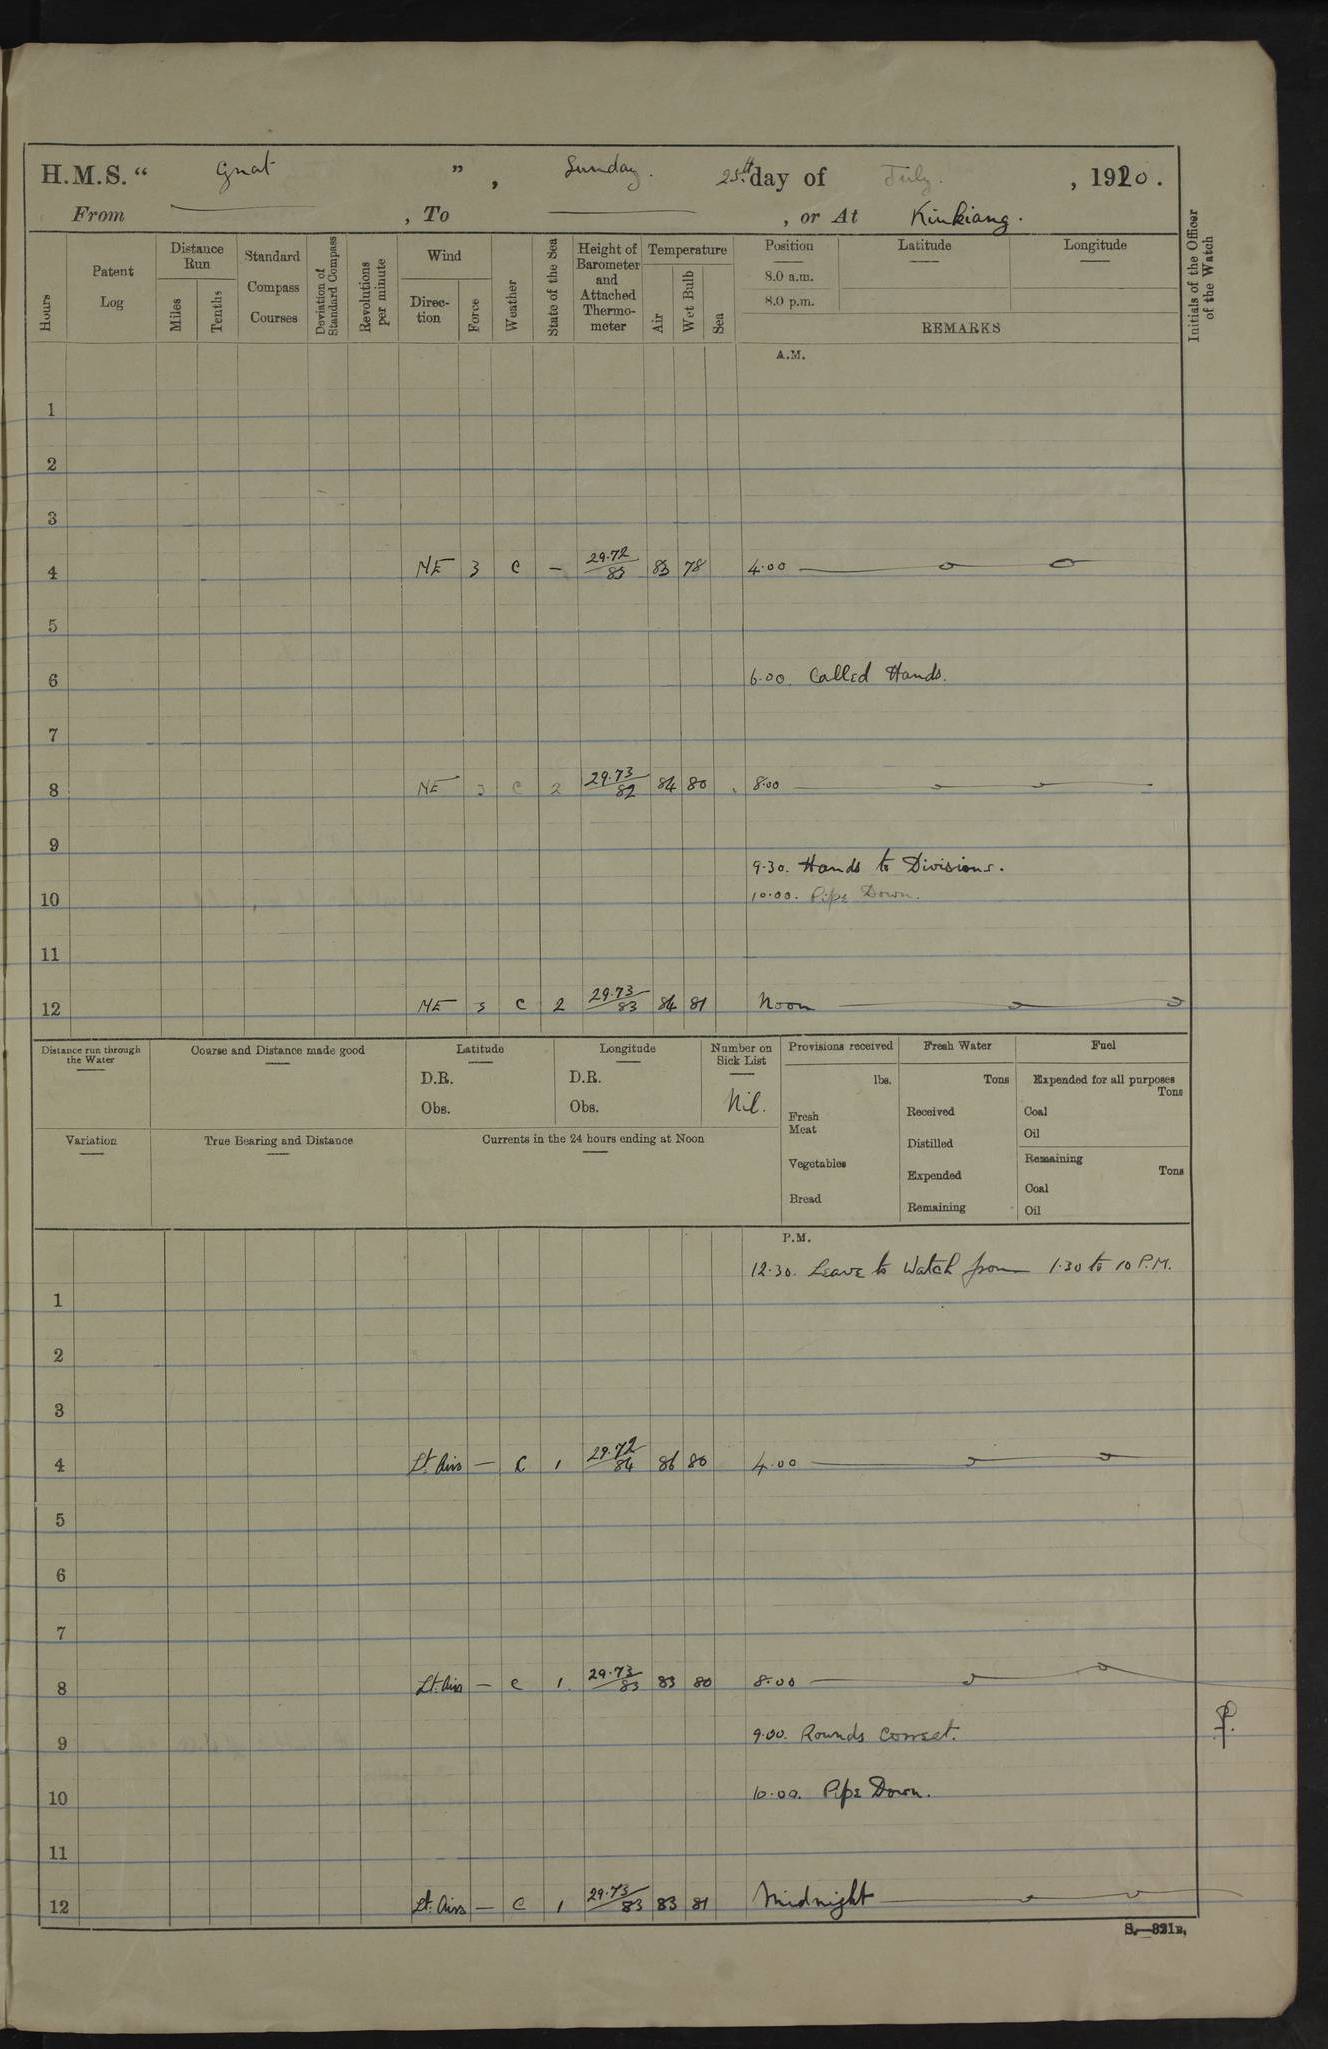 H.M.S. “ Gnat ” , Sunday. 25th day of July. , 1920.
From ——— , To ——— , or At Kiukiang.
Hours
Patent Log
Distance Run
Miles
Tenths
Standard Compass Courses
Deviation of Standard Compass
Revolutions per minute
Wind
Direc-tion
Force
Weather
State of the Sea
Height of Barometer and Attached Thermo-meter
Temperature
Air
Wet Bulb
Sea
Position
8.0 a.m.
8.0 p.m.
Latitude
Longitude
REMARKS
Initials of the Officer of the Watch
A.M.
1
2
3
4 NE 3 C – 29.72/83 83 78 4.00
5
6 6.00. Called Hands.
7
8 NE 3 C 2 29.73/82 84 80 8.00
9
9.30. Hands to Divisions.
10 10.00. Pipe Down.
11
12 NE 3 C 2 29.73/83 84 81 Noon
Distance run through the Water
Course and Distance made good
Latitude
D.R.
Obs.
Longitude
D.R.
Obs.
Number on Sick List
Nil.
Provisions received
lbs.
Fresh Meat
Vegetables
Bread
Fresh Water
Tons
Received
Distilled
Expended
Remaining
Fuel
Expended for all purposes
Tons
Coal
Oil
Remaining
Tons
Coal
Oil
Variation
True Bearing and Distance
Currents in the 24 hours ending at Noon
P.M.
12.30. Leave to Watch from 1.30 to 10 P.M.
1
2
3
4 Lt. Airs – C 1 29.72/84 86 80 4.00
5
6
7
8 Lt. Airs – C 1 29.73/83 83 80 8.00
9 9.00. Rounds correct.
10 10.00. Pipe Down.
11
12 Lt. Airs – C 1 29.73/83 83 81 Midnight
S.—321B.